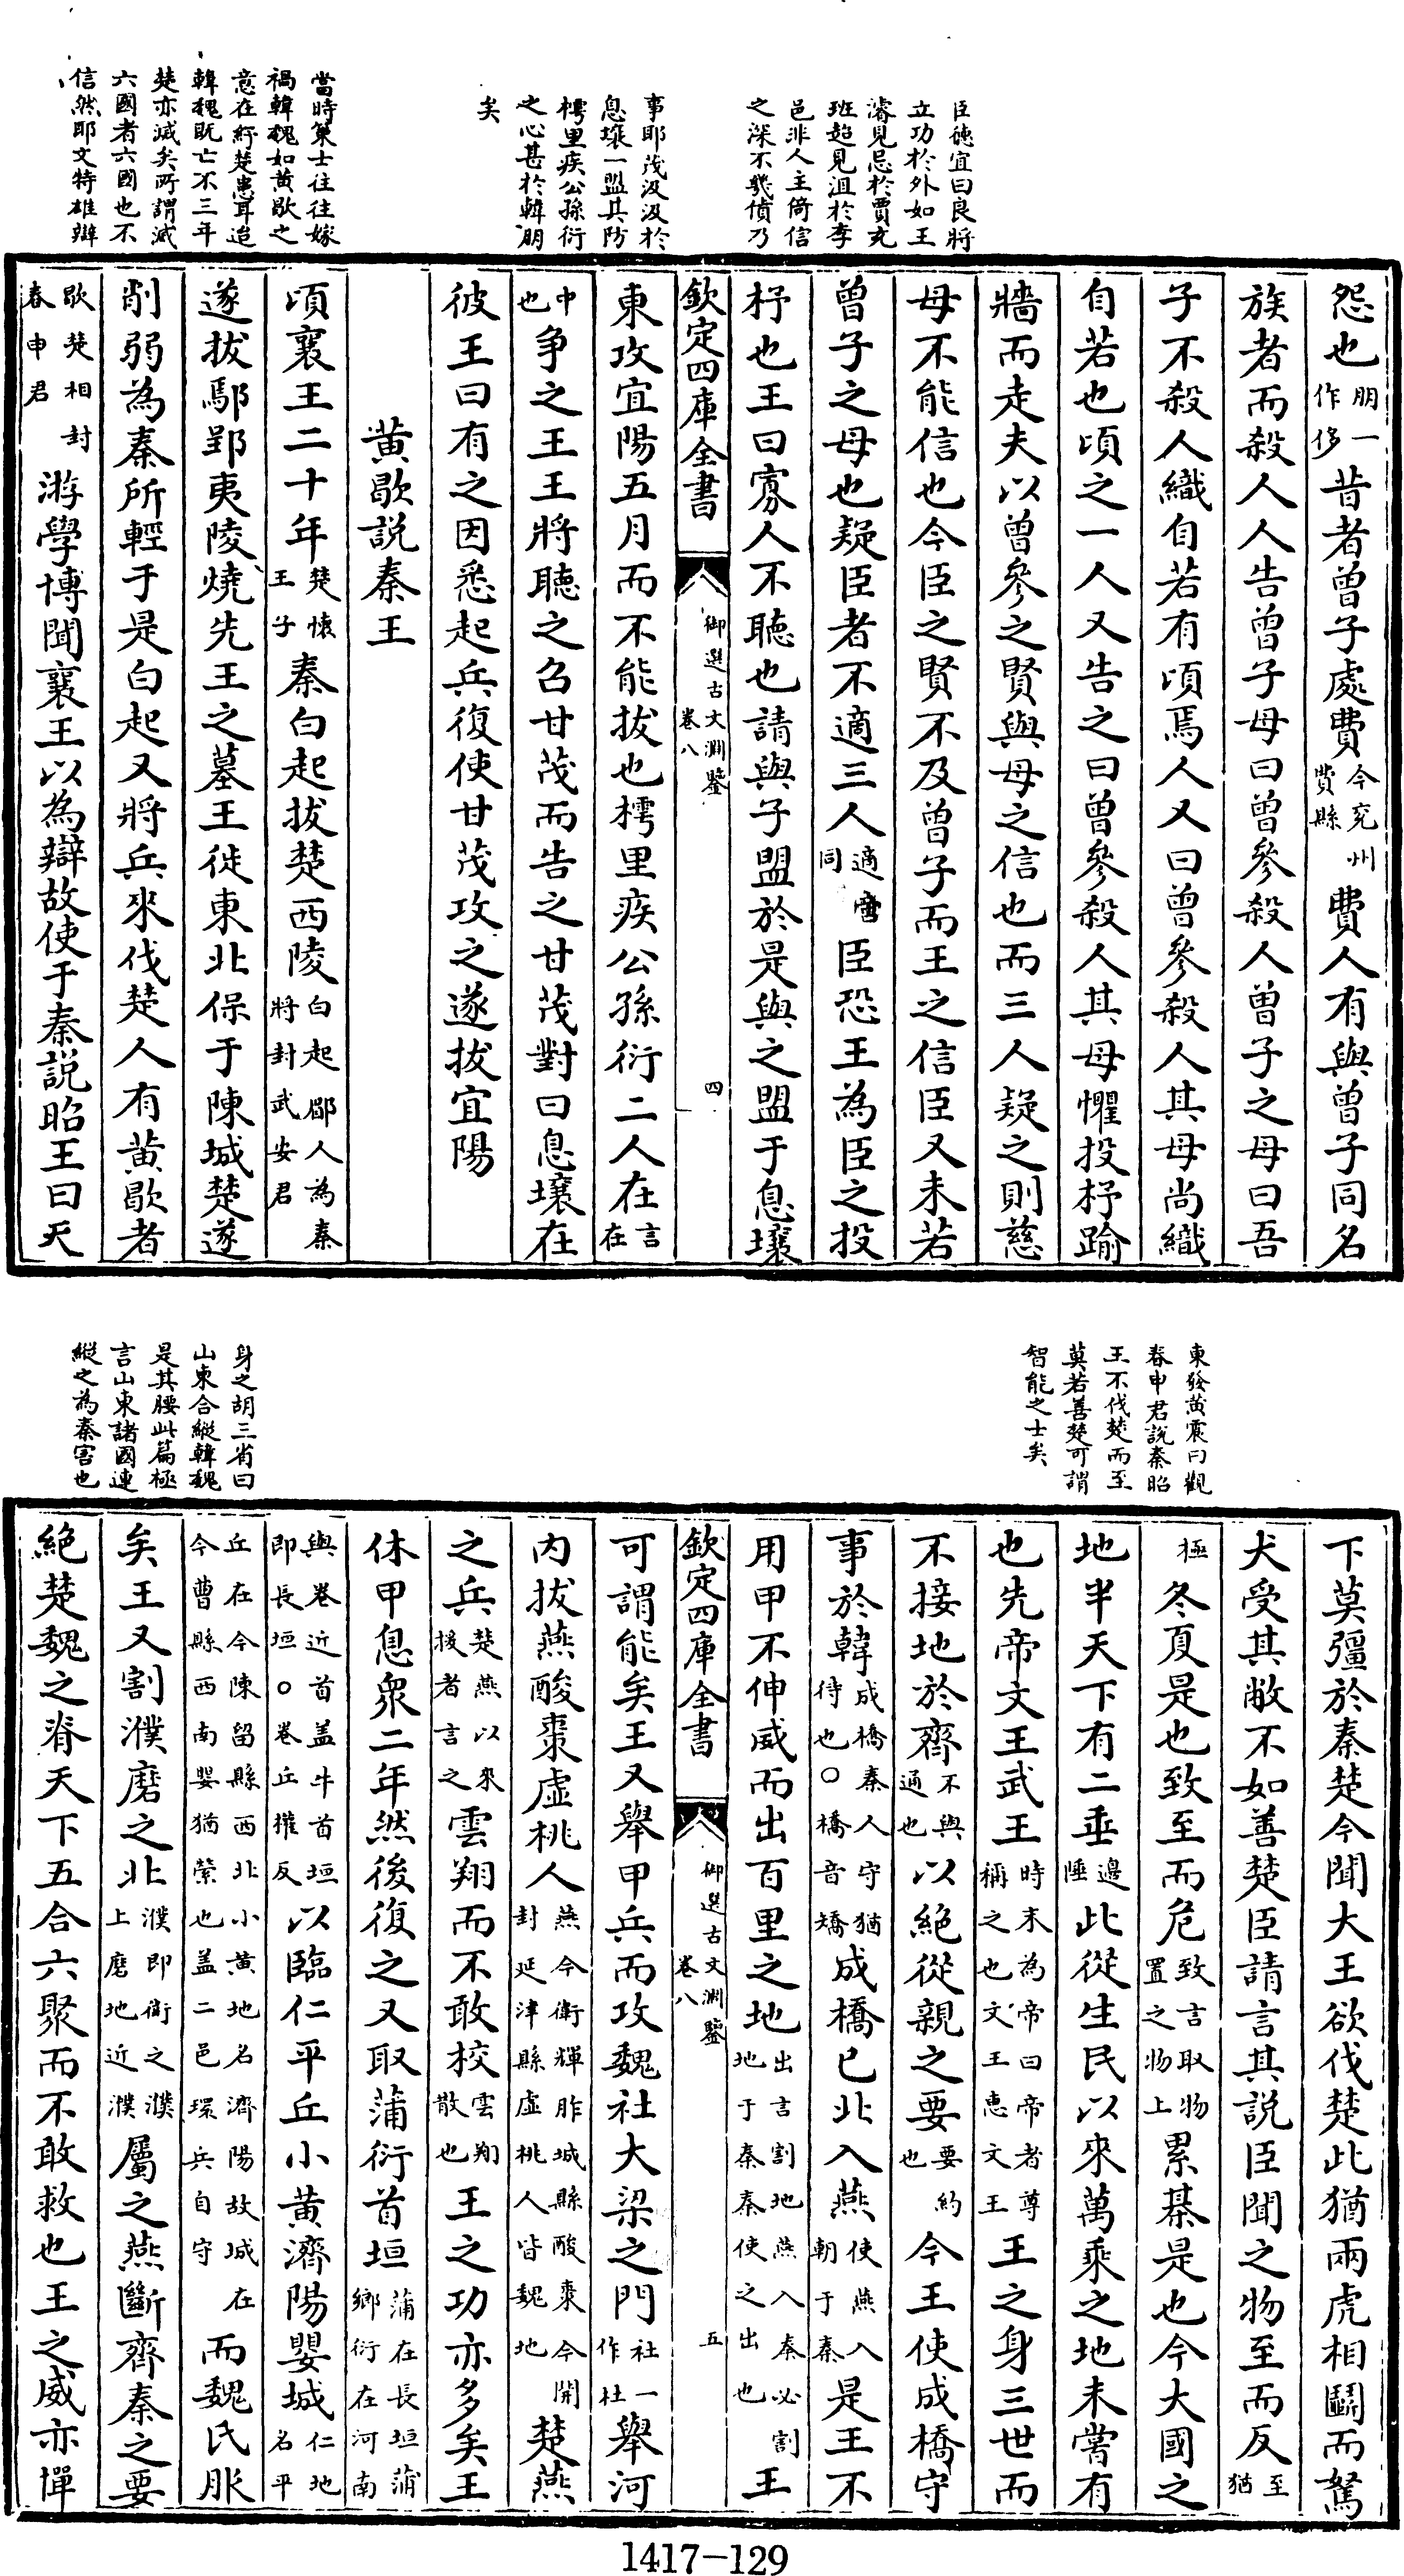 臣德宜曰良將
立功於外如王
濬見忌於賈充
班超見沮於李
邑非人主倚信
之深不幾僨乃
事耶茂汲汲於
息壤一盟其防
樗里疾公孫衍
之心甚於韓朋
矣
當時策士往往嫁
禍韓魏如黄歇之
意在紓楚患耳迨
韓魏既亡不三年
楚亦滅矣所謂滅
六國者六國也不
信然耶文特雄辯
怨也朋一作侈昔者曾子處費今兖州費縣費人有與曾子同名
族者而殺人人告曾子母曰曾參殺人曾子之母曰吾
子不殺人織自若有頃焉人又曰曾參殺人其母尚織
自若也頃之一人又告之曰曾參殺人其母懼投杼踰
牆而走夫以曾參之賢與母之信也而三人疑之則慈
母不能信也今臣之賢不及曾子而王之信臣又未若
曾子之母也疑臣者不適三人適啻同臣恐王為臣之投
杼也王曰寡人不聽也請與子盟於是與之盟于息壤
欽定四庫全書 御選古文淵鑒卷八 四
東攻宜陽五月而不能拔也樗里疾公孫衍二人在言在
中也争之王王將聽之召甘茂而告之甘茂對曰息壤在
彼王曰有之因悉起兵復使甘茂攻之遂拔宜陽
黄歇説秦王
頃襄王二十年楚懷王子秦白起拔楚西陵白起郿人為秦將封武安君
遂拔鄢郢夷陵燒先王之墓王徙東北保于陳城楚遂
削弱為秦所輕于是白起又將兵來伐楚人有黄歇者
歇楚相封春申君游學博聞襄王以為辯故使于秦説昭王曰天
東發黄震曰觀
春申君說秦昭
王不伐楚而至
莫若善楚可謂
智能之士矣
身之胡三省曰
山東合縱韓魏
是其腰此篇極
言山東諸國連
縱之為秦害也
下莫彊於秦楚今聞大王欲伐楚此猶兩虎相鬭而駑
犬受其敝不如善楚臣請言其説臣聞之物至而反至猶
極冬夏是也致至而危致言取物置之物上累棊是也今大國之
地半天下有二垂邊陲此從生民以來萬乘之地未嘗有
也先帝文王武王時未為帝曰帝者尊稱之也文王惠文王王之身三世而
不接地於齊不與通也以絶從親之要要約也今王使成橋守
事於韓成橋秦人守猶待也○橋音矯成橋已北入燕使燕入朝于秦是王不
用甲不伸威而出百里之地出言割地燕入秦必割地于秦秦使之出也王
欽定四庫全書 御選古文淵鑒卷八 五
可謂能矣王又舉甲兵而攻魏社大梁之門社一作杜舉河
内拔燕酸棗虚桃人燕今衛輝胙城縣酸棗今開封延津縣虚桃人皆魏地楚燕
之兵楚燕以來援者言之雲翔而不敢校雲翔散也王之功亦多矣王
休甲息衆二年然後復之又取蒲衍首垣蒲在長垣蒲鄉衍在河南
與卷近首盖牛首垣即長垣○卷丘權反以臨仁平丘小黄濟陽嬰城仁地名平
丘在今陳留縣西北小黄地名濟陽故城在今曹縣西南嬰猶縈也盖二邑環兵自守而魏氏服
矣王又割濮磨之北濮即衛之濮上磨地近濮屬之燕斷齊秦之要
絶楚魏之脊天下五合六聚而不敢救也王之威亦憚
1417-129